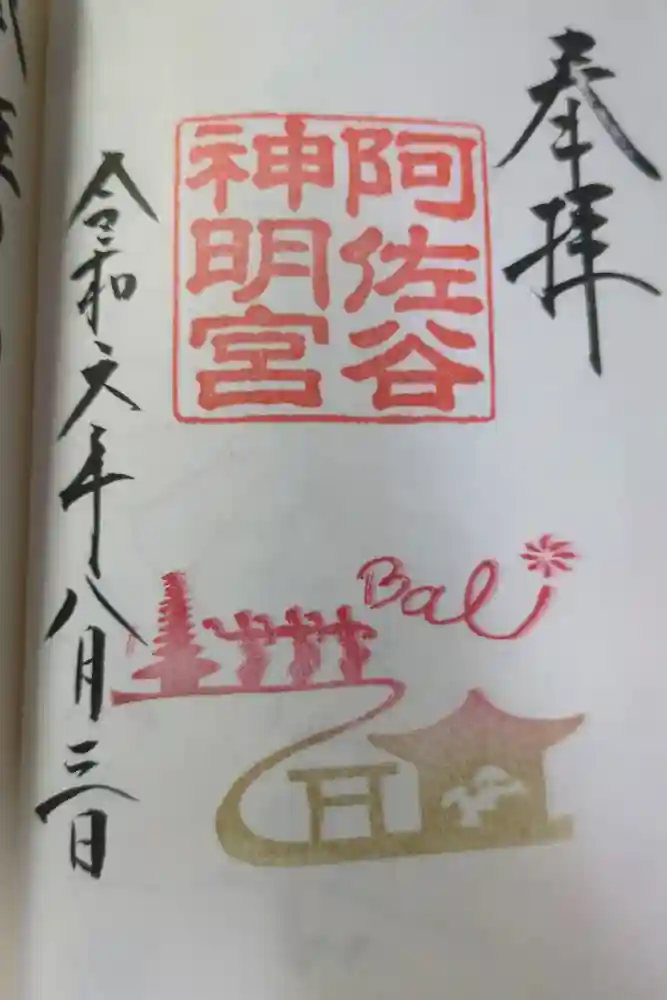 奉拝
阿佐谷
神明宮
Bali
令和六年八月三日